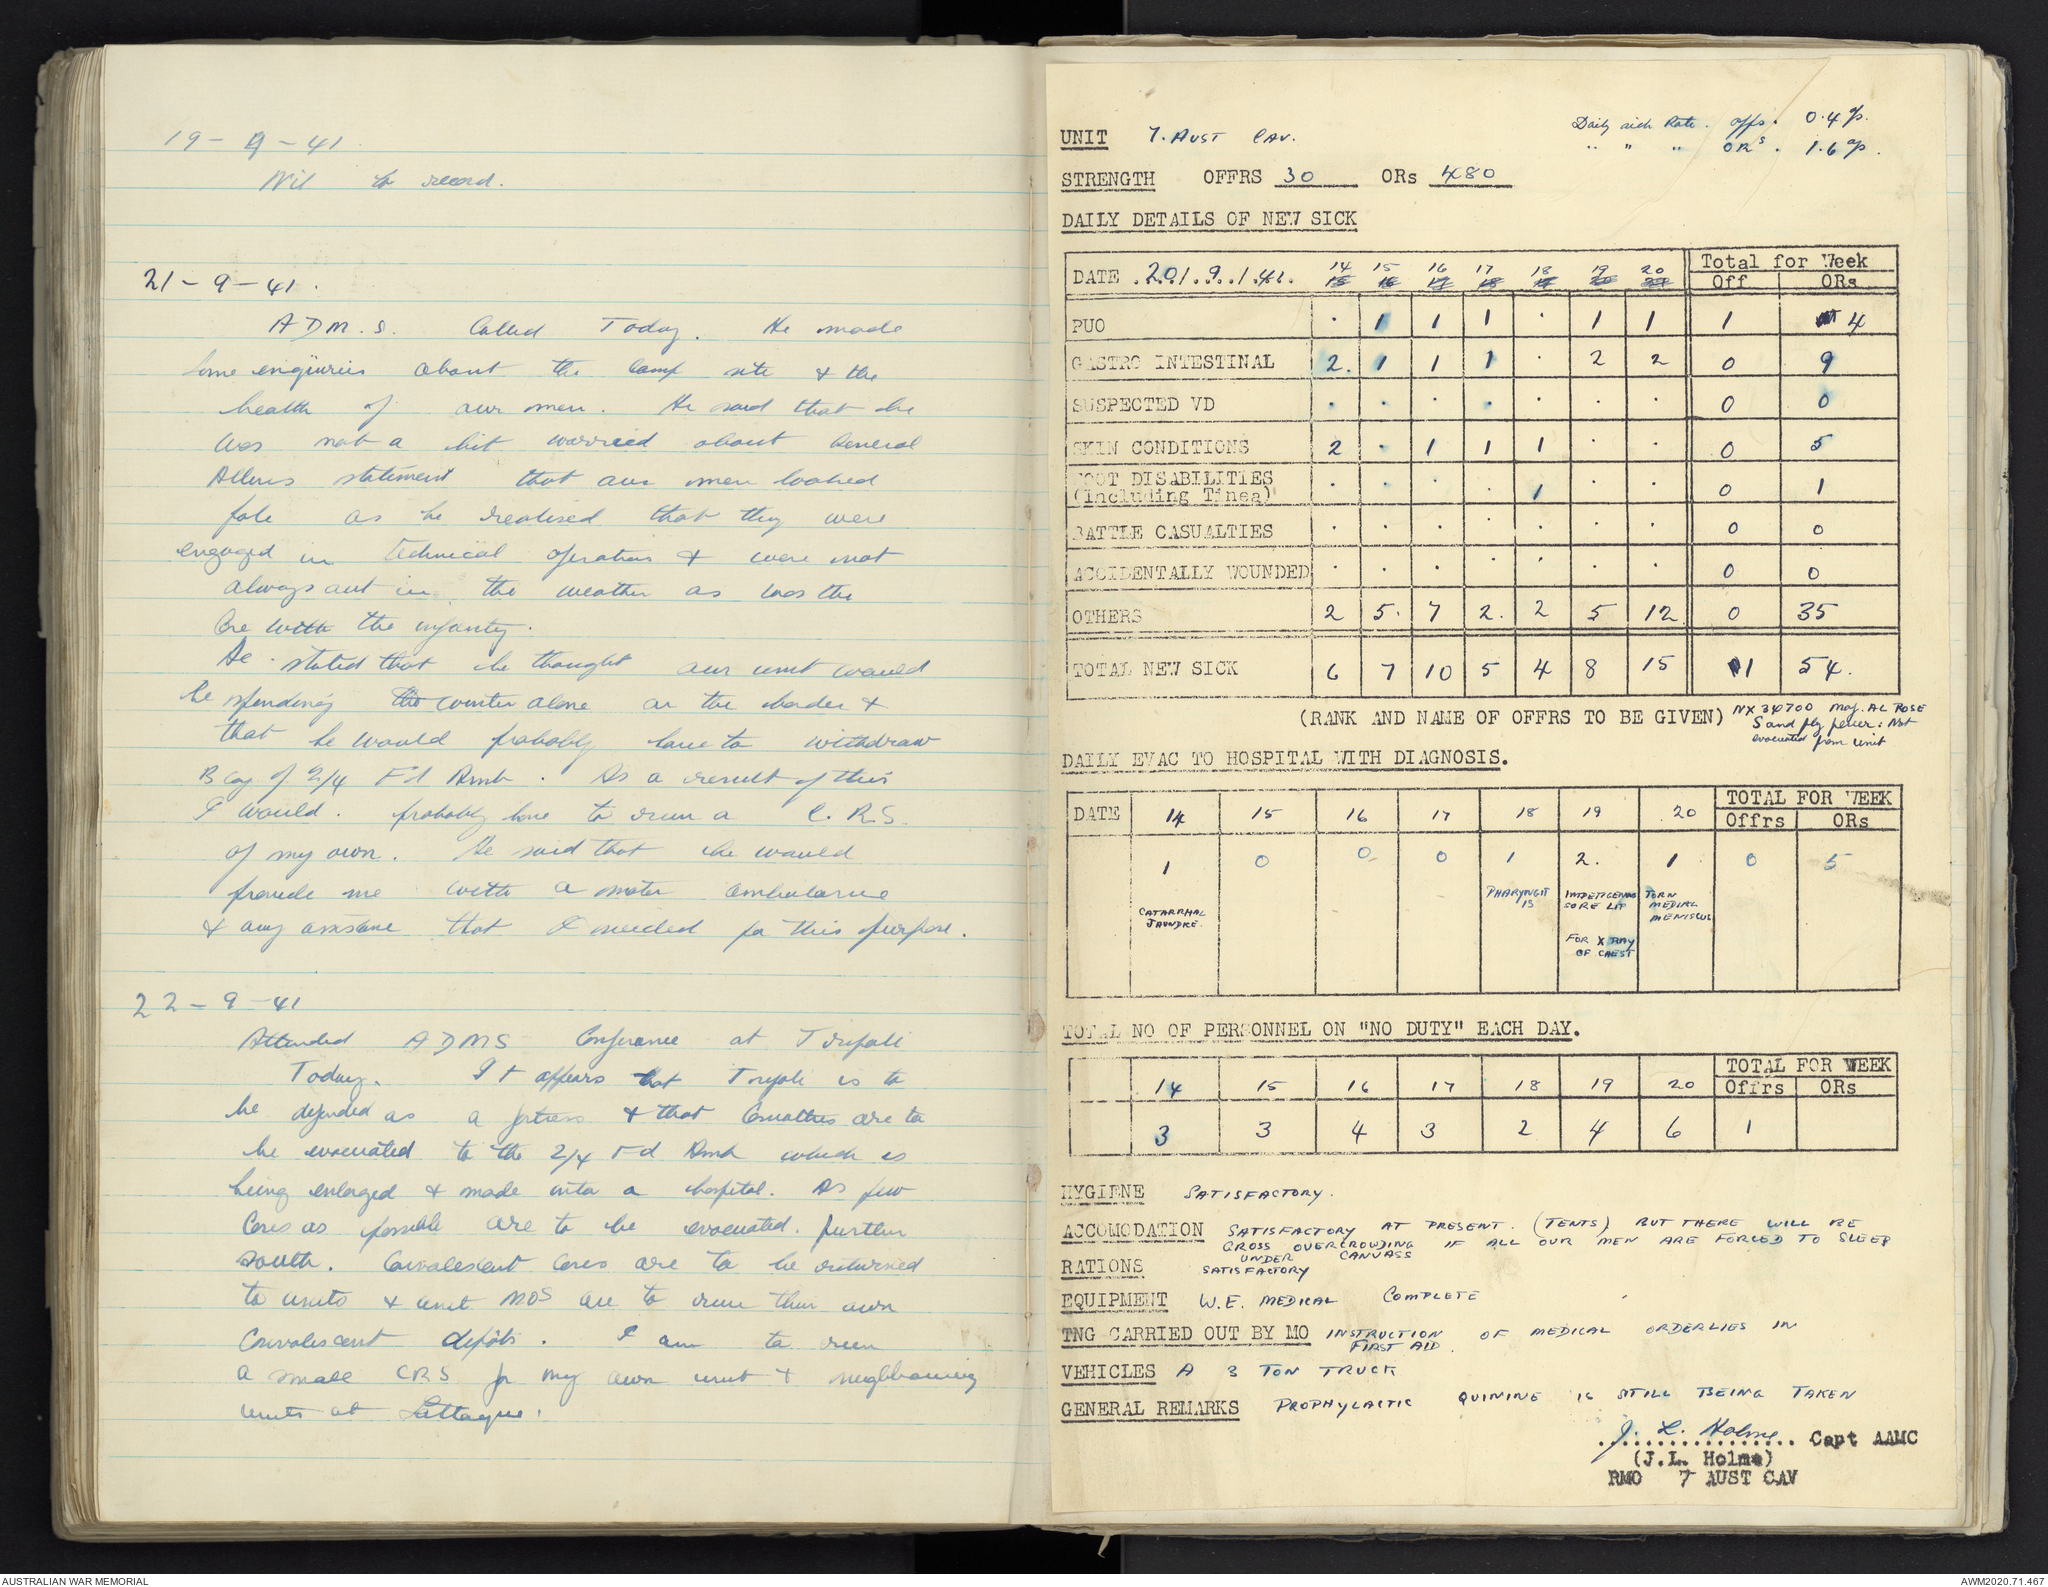 19-9-41.
Nil to record.
21-9-41.
ADM.S. Called Today. He made
some enquiries about the Camp site & the
health of our men. He said that he
was not a bit worried about General
Allens statement that our men looked
pale as he realised that they were
engaged in technical operations & were not
always out in the weather as was the
Case with the infantry.
He stated that he thought our unit would
be spending the winter alone on the border &
that he would probably have to withdraw
B coy of 2/4 Fd Amb. As a result of this
I would. probably have to run a C.R.S.
of my own. He said that he would
provide me with a motor ambulance
& any assistance that I needed for this purpose.
22-9-41
Attended ADMS Conference at Tripoli
Today. It appears that Tripoli is to
be defended as a fortress & that Casualties are to
be evacuated to the 2/4 Fd Amb which is
being enlarged & made into a hospital. As few
Cases as possible are to be evacuated. further
south. Convalescent cases are to be returned
to units & unit MOS are to run their own
Convalescent depots. I am to run
a small CRS for my own unit & neighbouring
units at Lattaque.
Daily sick Rate. offs. 0.4 %.
" " " ORs. 1.6 %.
UNIT 7. AUST CAV.
STRENGTH OFFRS 30 ORs 480
DAILY DETAILS OF NEW SICK
DATE 20/.9./.41. 14 15 16 17 18 19 20 Total for Week
Off ORs
PUO . 1 1 1 . 1 1 1 4
GASTRO INTESTINAL 2. 1 1 1 . 2 2 0 9
SUSPECTED VD . . . . . . . 0 0
SKIN CONDITIONS 2 . 1 1 1 . . 0 5
FOOT DISABILITIES
(including Tinea) . . . . 1 . . 0 1
BATTLE CASUALTIES . . . . . . . 0 0
ACCIDENTALLY WOUNDED . . . . . . . 0 0
OTHERS 2 5. 7 2. 2 5 12 0 35
TOTAL NEW SICK 6 7 10 5 4 8 15 1 54.
(RANK AND NAME OF OFFRS TO BE GIVEN) NX 34700 Maj. AL ROSE
Sand fly fever: Not
evacuated from unit
DAILY EVAC TO HOSPITAL WITH DIAGNOSIS.
DATE 14 15 16 17 18 19 20 TOTAL FOR WEEK
Offrs ORs
1 0 0 0 1 2. 1 0 5
CATARRHAL
JAUNDKE
PHARYNGIT
IS
IMPETIGENOUS
SORE LIP
FOR X RAY
OF CHEST
TORN
MEDIAL
MENISCUS
TOTAL NO OF PERSONNEL ON "NO DUTY" EACH DAY.
14 15 16 17 18 19 20 TOTAL FOR WEEK
Offrs ORs
3 3 4 3 2 4 6 1
HYGIENE SATISFACTORY.
ACCOMODATION SATISFACTORY AT PRESENT. (TENTS) BUT THERE WILL BE
GROSS OVERCROWDING IF ALL OUR MEN ARE FORCED TO SLEEP
UNDER CANVASS
RATIONS SATISFACTORY
EQUIPMENT W.E. MEDICAL COMPLETE
TNG CARRIED OUT BY MO INSTRUCTION OF MEDICAL ORDERLIES IN
FIRST AID.
VEHICLES A 3 TON TRUCK
GENERAL REMARKS PROPHYLACTIC QUININE IS STILL BEING TAKEN
J. L. Holme Capt AAMC
(J.L. Holme)
RMO 7 AUST CAV
AUSTRALIAN WAR MEMORIAL
AWM2020.71.467